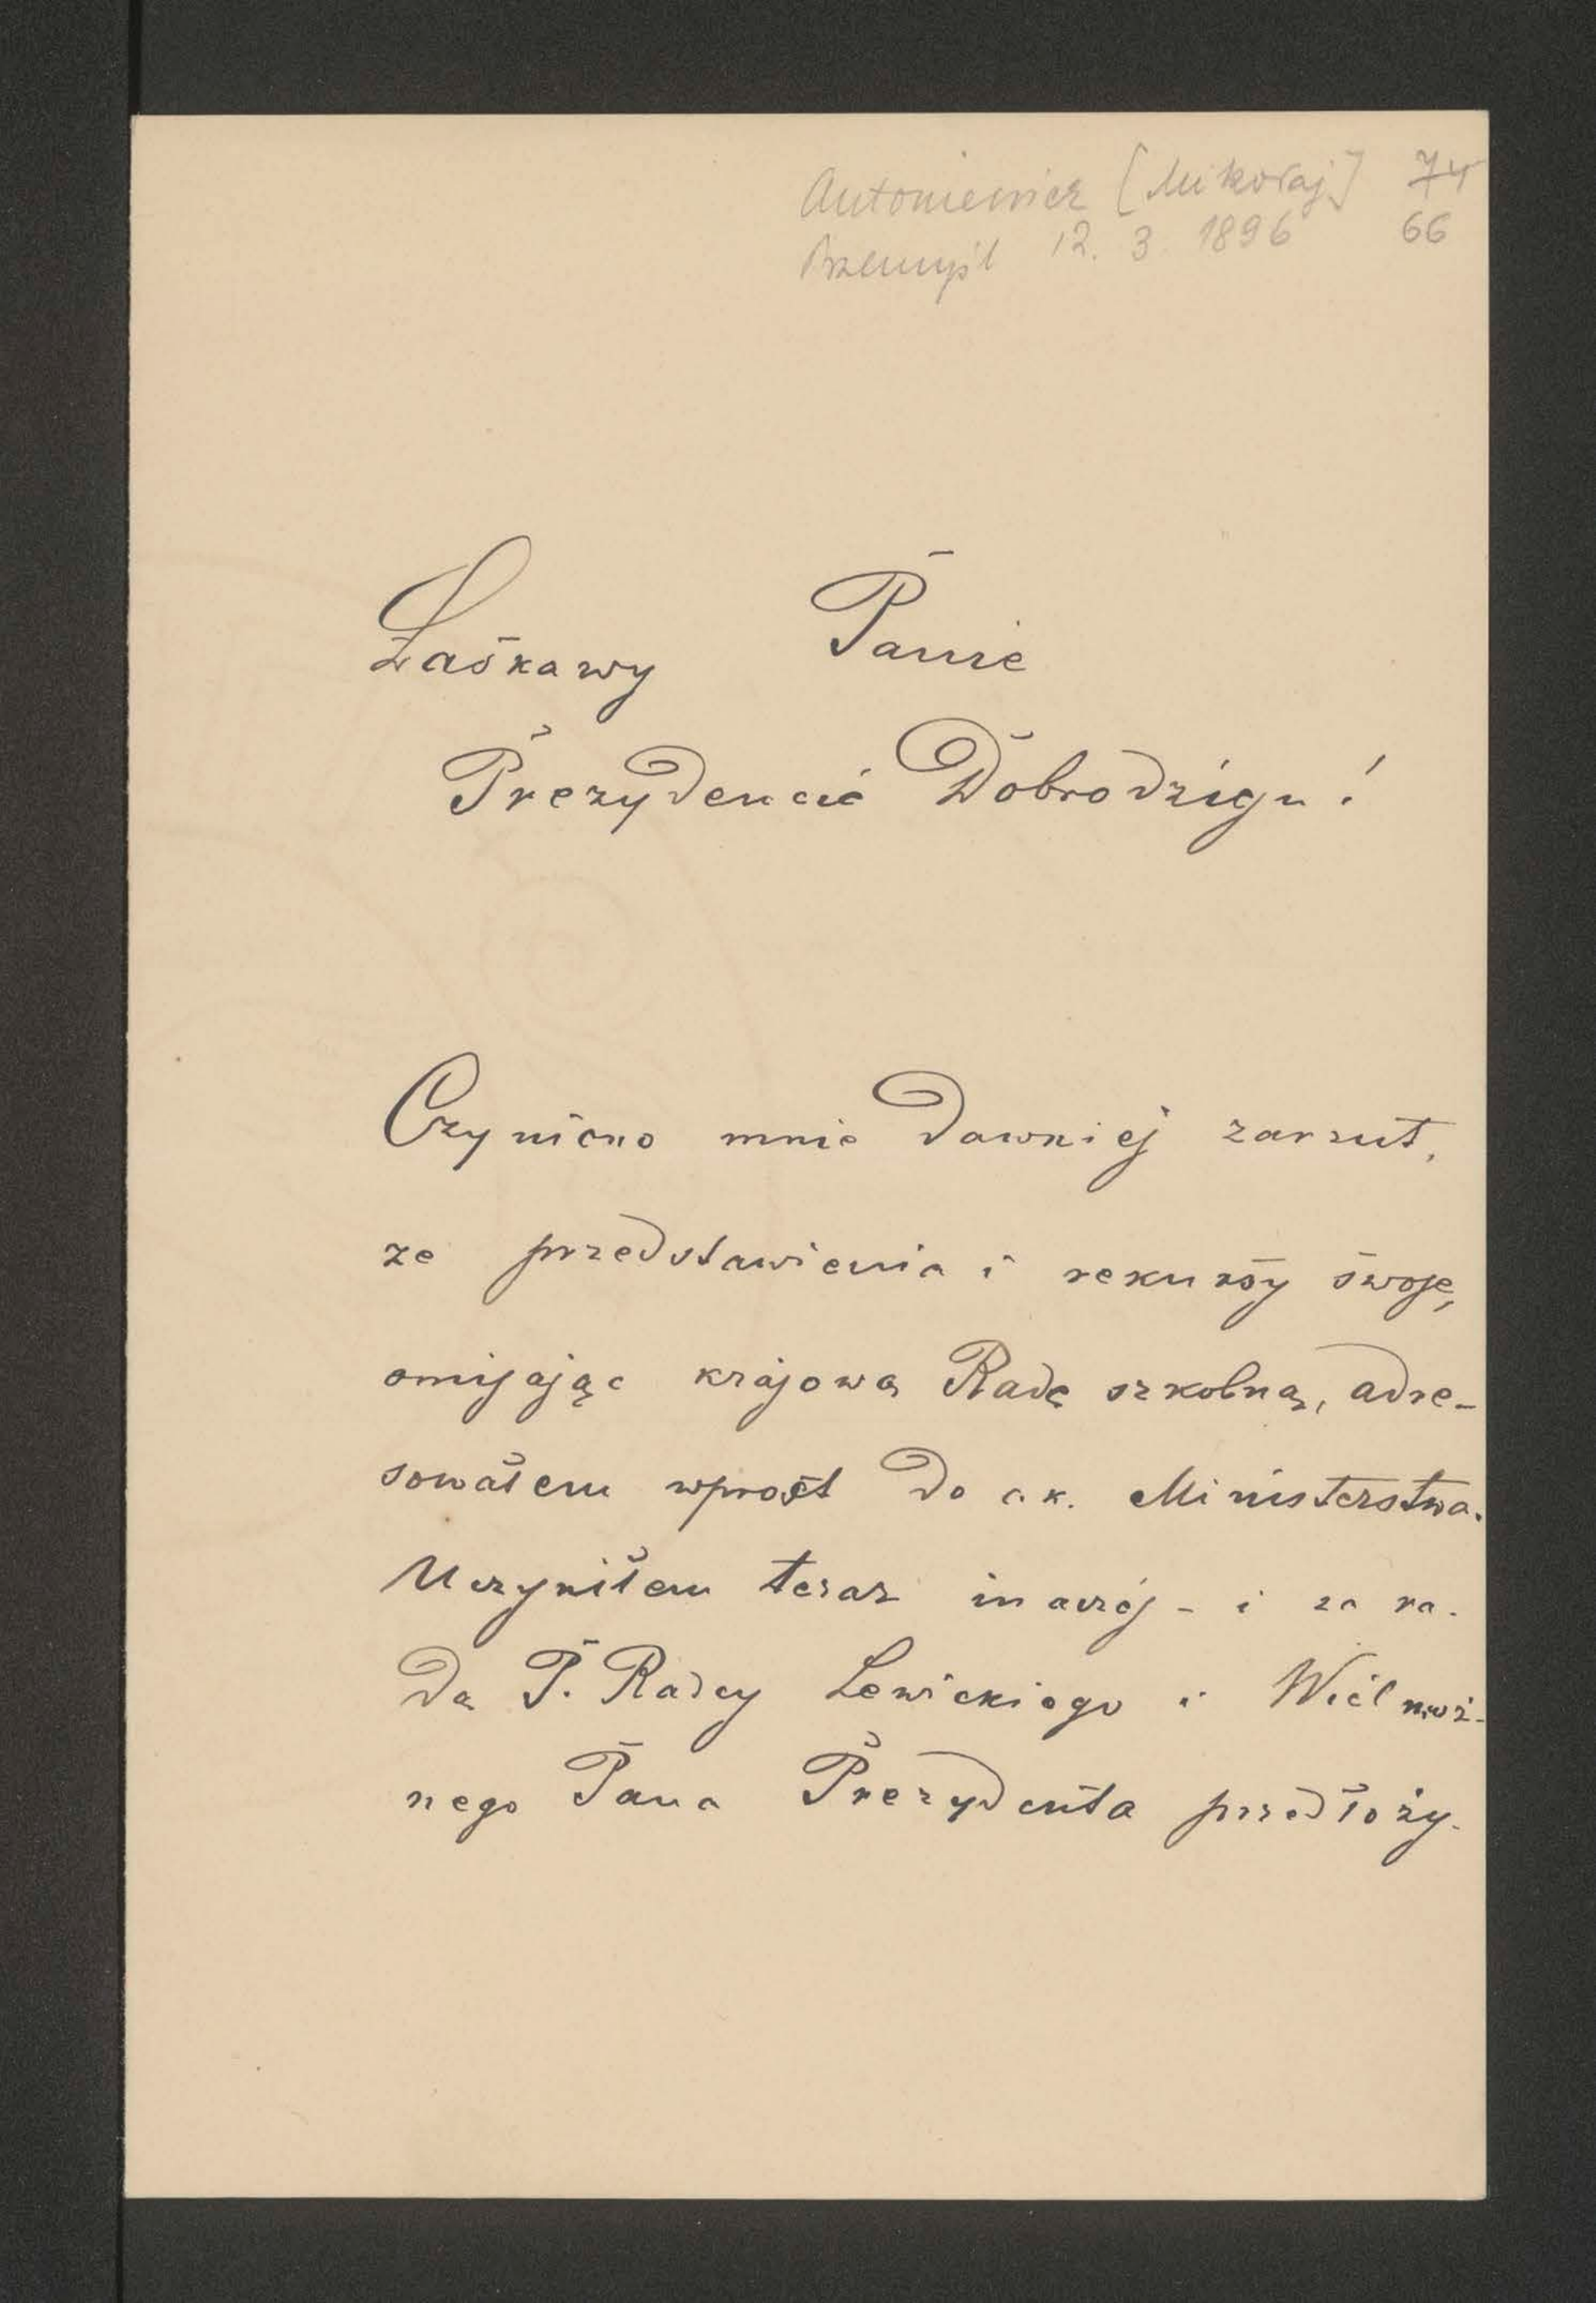 Antoniewicz [Mikołaj] 74
Przemyśl 12. 3. 1896 66
Łaskawy Panie
Prezydencie Dobrodzieju!
Czyniono mnie dawniej zarzut,
że przedstawienia i rekursy swoje,
omijając krajową Radę szkolną, adre-
sowałem wprost do c. k. Ministerstwa.
Uczyniłem teraz inaczej - i za ra-
dą P. Radcy Lewickiego i Wielmoż-
nego Pana Prezydenta przedłoży-